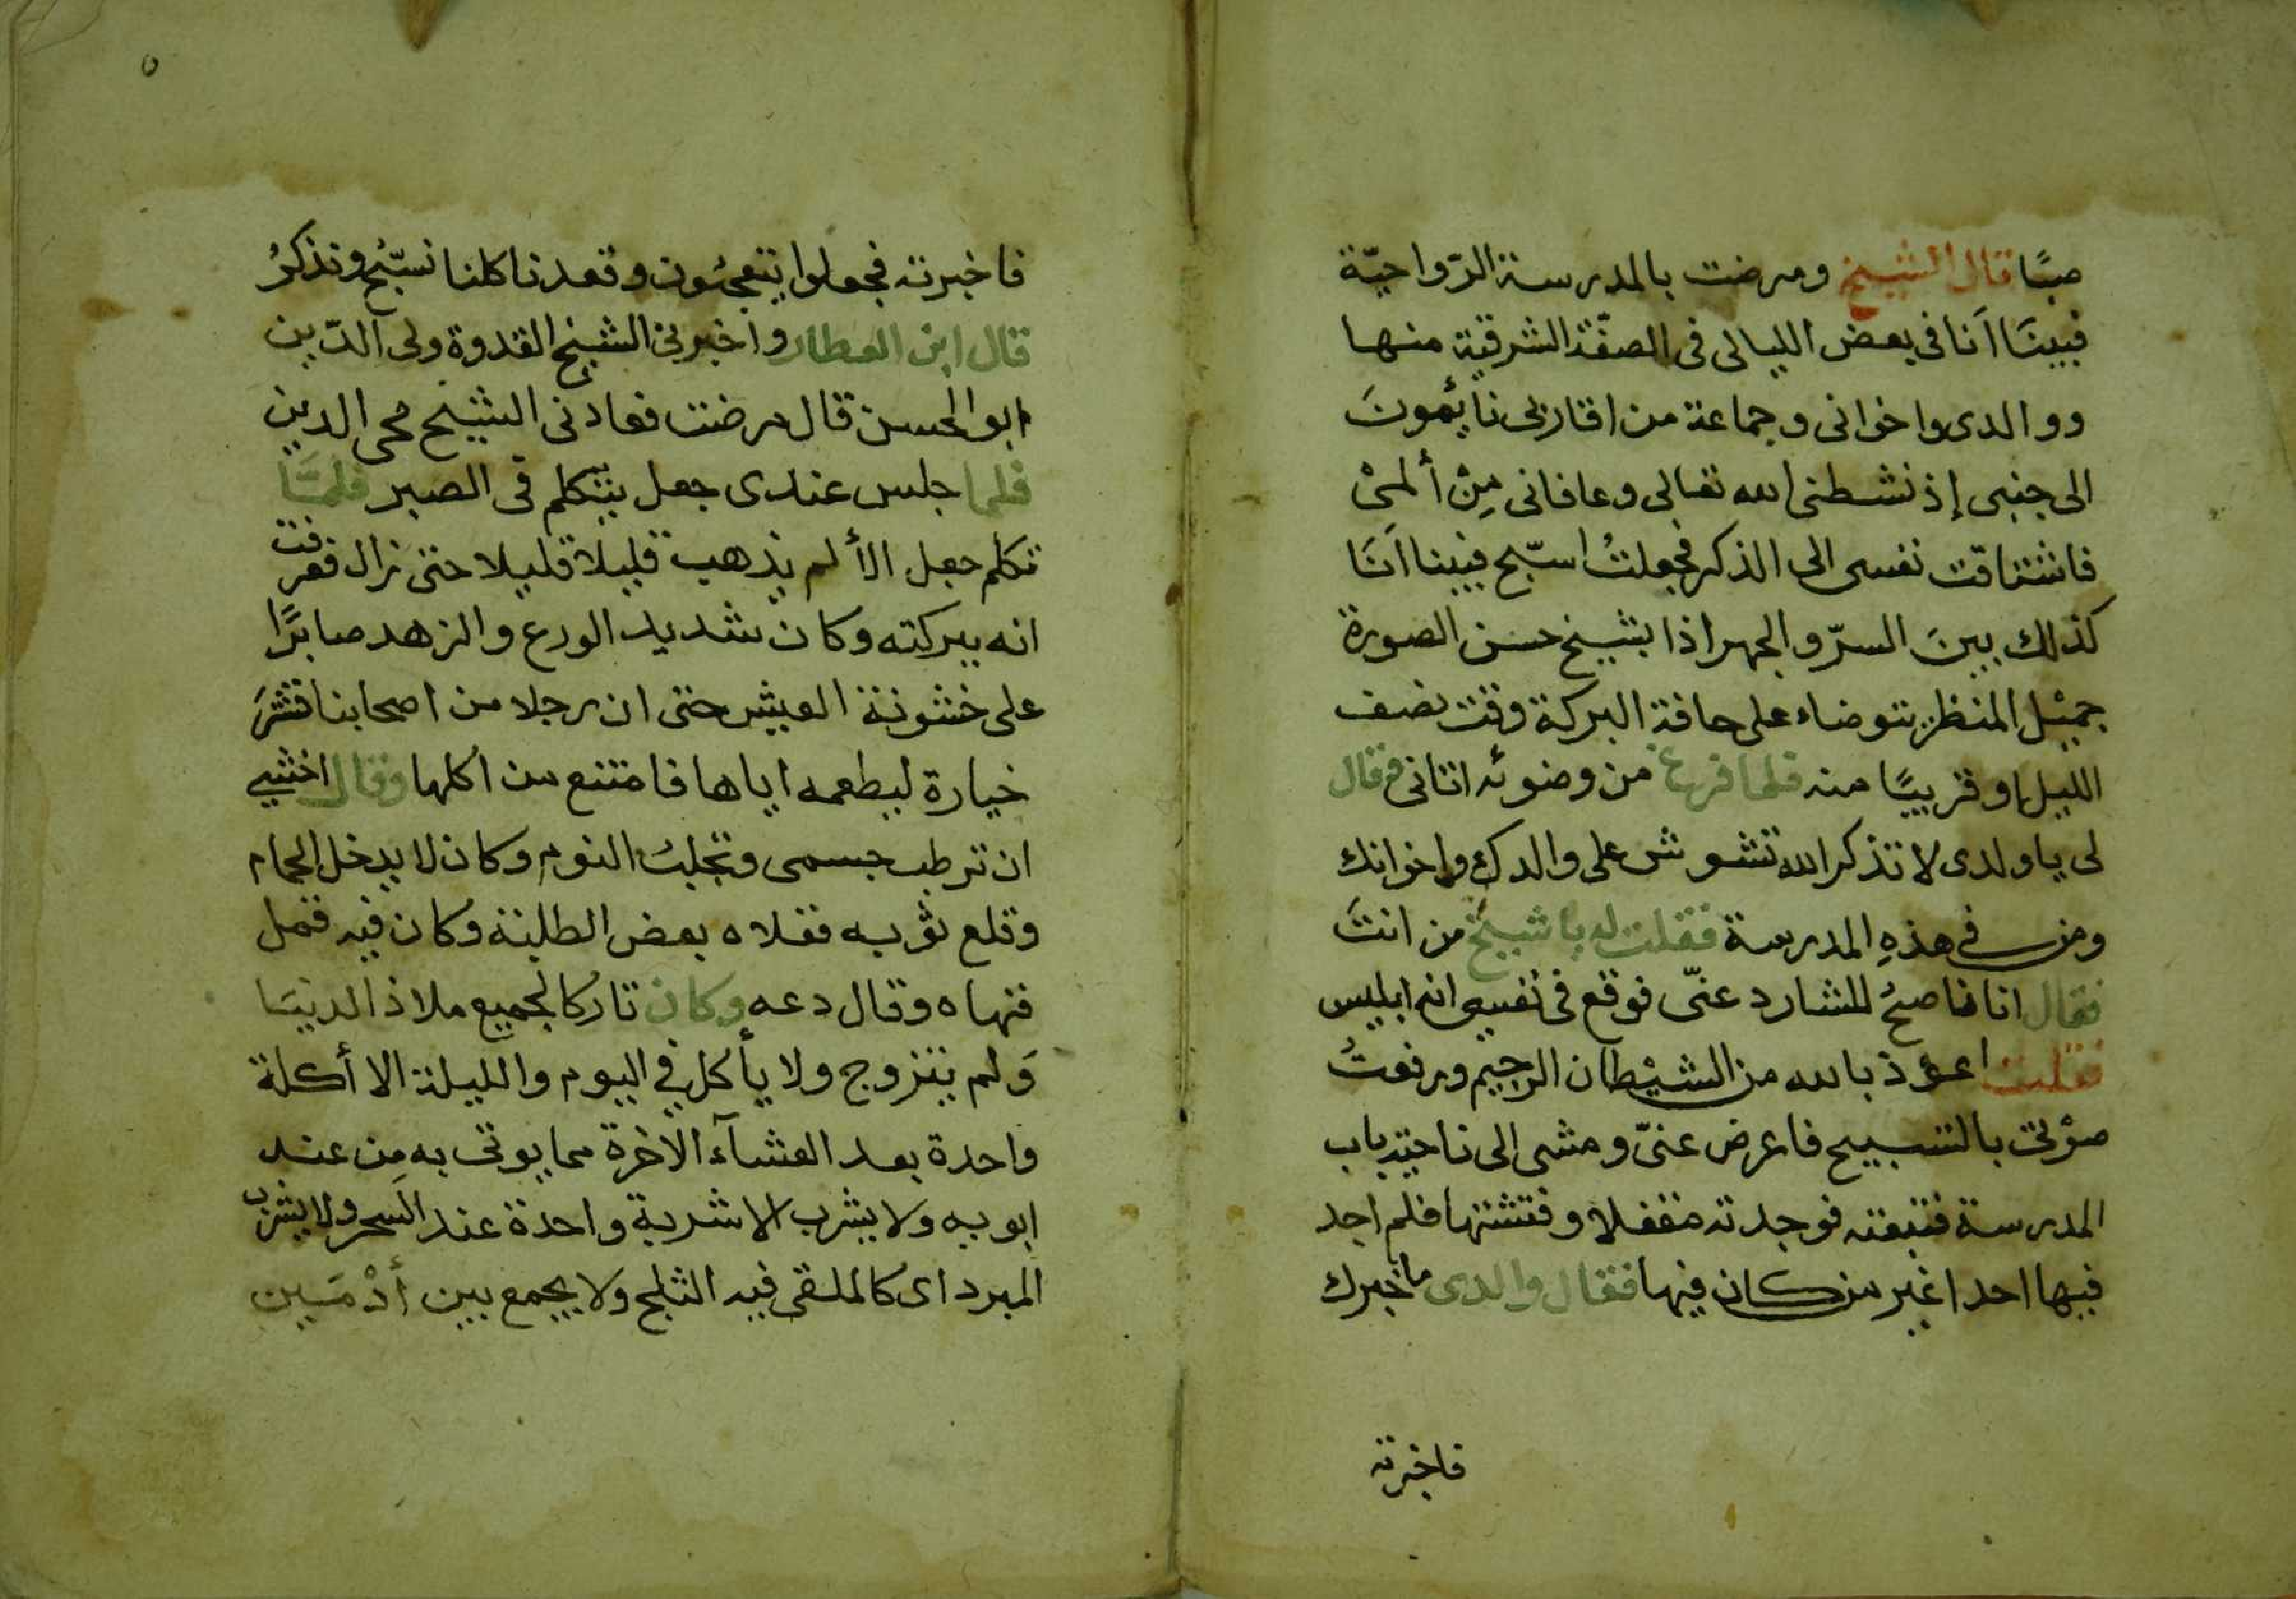 صبًا قال الشيخ ومرضت بالمدرسة الرّواحيّة
فبينَا اَنا فى بعض الليالى فى الصفّة الشرقية منها
ووالدى واخوانى وجماعة من اقاربى نائمونَ
الى جنبى إذ نشطنى الله تعالى وعافانى مِنْ ألمىْ
فاشتاقت نفسى الى الذكر فجعلتُ اسبّح فبينا اَنَا
كذلك بينَ السرّ والجهر اذا بشيخ حسن الصورة
جميْل المنظر يتوضاء على حافة البركة وقت نصف
الليل او قريبًا منه فلما فرغ من وضوئه اتانى وقال
لى يا ولدى لا تذكر الله تشوش على والدك واخوانك
ومن فى هذهِ المدرسة فقلت له يا شيخ من انتَ
فقال انا ناصحُ للشارد عنّى فوقع فى نفسى انه ابليس
فقلت اعوذ بالله من الشيْطان الرجيم ورفعتُ
صوْتى بالتسبيح فاعرض عنّى ومشى الى ناحية باب
المدرسة فتبعته فوجدته مقفلا وفتشتها فلم اجد
فيها احدا غير من كان فيها فقال والدى ما خبرك
فاخبرته
٥
فاخبرته فجعلوا يتعجبُون وقعدنا كلنا نسبّح ونذكرُ
قال ابن العطار واخبرنى الشيخ القدوة ولى الدّين
ابو الحسن قال مرضت فعادنى الشيخ محى الدين
فلما جلس عندى جعل يتكلم فى الصبر فلمَّا
تكلم جعل الألم يذهب قليلا قليلا حتى زال فعرفت
انه ببركته وكان شديد الورع والزهد صابرًا
على خشونة العيش حتى ان رجلا من اصحابنا قشرَ
خيارة ليطعمه اياها فامتنع من اكلها وقال اخشى
ان ترطب جسمى وتجلبُ النوم وكان لا يدخل الحمام
وقلع ثوبه ففلاه بعض الطلبة وكان فيه قمل
فنهاه وقال دعه وكان تاركا لجميع ملاذ الدنيَا
وَلم يتزوج ولا يأكل فى اليوم والليلة الا أكلة
واحدة بعد العشآء الاخرة مما يوتى به مِن عند
ابويه ولا يشرب الا شربة واحدة عند السحر ولا يشرب
المبرد اى كالملقى فيه الثلج ولا يجمع بين أدْمَين